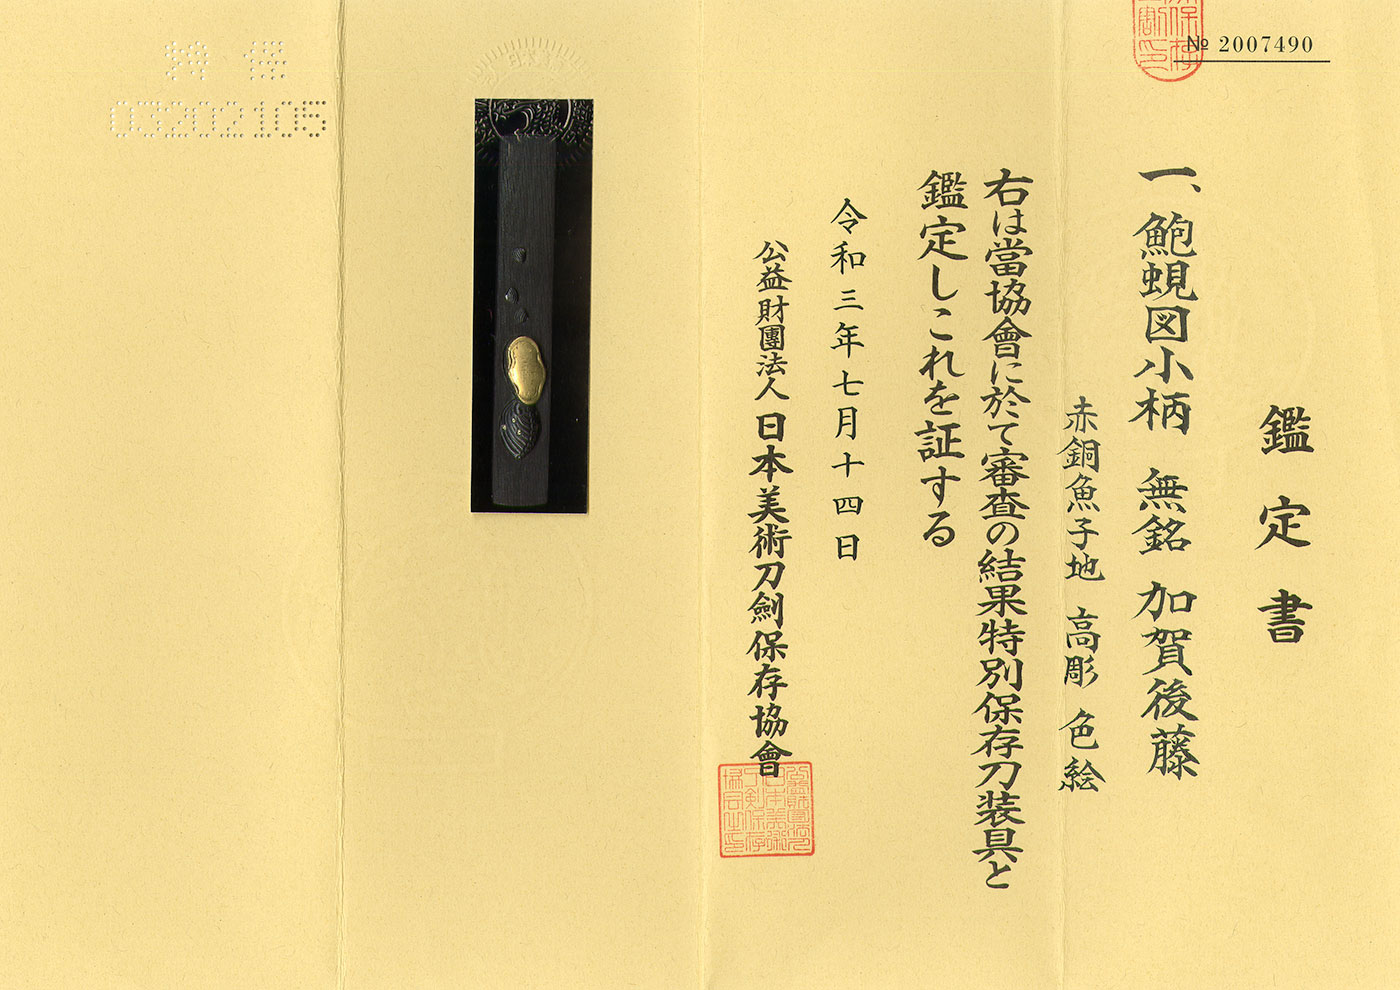 № 2007490
鑑定書
一、鮑蜆図小柄 無銘 加賀後藤
赤銅魚子地 高彫 色絵
右は當協會に於て審査の結果特別保存刀装具と
鑑定しこれを証する
令和三年七月十四日
公益財團法人 日本美術刀劍保存協會
特保
03202105